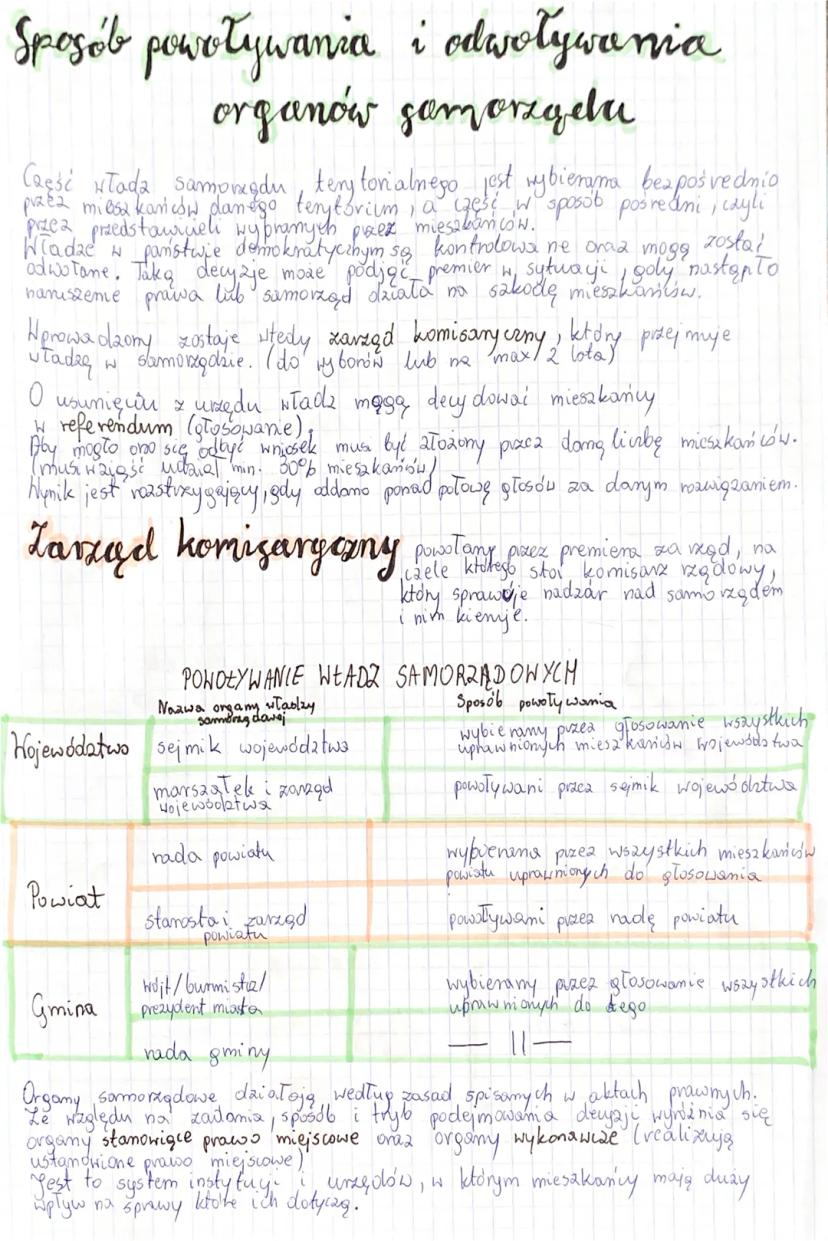 Sposób powoływania i odwoływania
organów samorządu
Część władz samorządu terytorialnego jest wybierana bezpośrednio
przez mieszkańców danego terytorium, a część w sposób pośredni, czyli
przez przedstawicieli wybranych przez mieszkańców.
Władze w państwie demokratycznym są kontrolowane oraz mogą zostać
odwołane. Taką decyzję może podjąć premier w sytuacji, gdy nastąpiło
naruszenie prawa lub samorząd działa na szkodę mieszkańców.
Wprowadzony zostaje wtedy zarząd komisaryczny, który przejmuje
władzę w samorządzie. (do wyborów lub na max/2 lata)
O usunięciu z urzędu władz mogą decydować mieszkańcy
w referendum (głosowanie).
Aby mogło ono się odbyć wniosek musi być złożony przez daną liczbę mieszkańców.
(musi wziąść udział min. 30% mieszkańców)
Wynik jest rozstrzygający, gdy oddano ponad połowę głosów za danym rozwiązaniem.
Zarząd komisaryczny powołany przez premiera zarząd, na
czele którego stoi komisarz rządowy,
który sprawuje nadzór nad samorządem
i nim kieruje.
POWOŁYWANIE WŁADZ SAMORZĄDOWYCH
Nazwa organu władzy samorządowej Sposób powoływania
Województwo
sejmik województwa
wybierany przez głosowanie wszystkich
uprawnionych mieszkańców województwa
marszałek i zarząd
województwa
powoływani przez sejmik województwa
Powiat
rada powiatu
wybierana przez wszystkich mieszkańców
powiatu uprawnionych do głosowania
starosta i zarząd
powiatu
powoływani przez radę powiatu
Gmina
wójt/burmistrz/
prezydent miasta
wybierany przez głosowanie wszystkich
uprawnionych do tego
rada gminy
— || —
Organy samorządowe działają według zasad spisanych w aktach prawnych.
Ze względu na zadania, sposób i tryb podejmowania decyzji wyróżnia się
organy stanowiące prawo miejscowe oraz organy wykonawcze (realizują
ustanowione prawo miejscowe)
Jest to system instytucji i urzędów, w którym mieszkańcy mają duży
wpływ na sprawy które ich dotyczą.